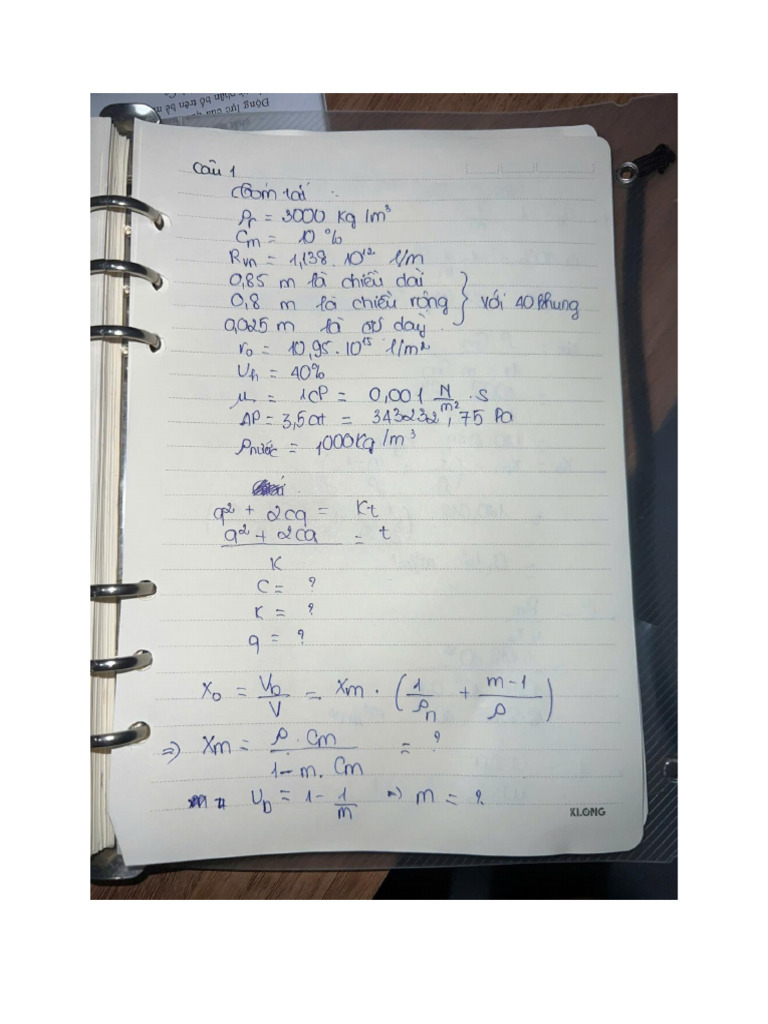 Động lực của quá
phân bố trên bề m
Câu 1
Tóm tắt :
ρr = 3000 kg/m³
Cm = 10 %
Rvn = 1,138.10¹² 1/m
0,85 m là chiều dài
0,8 m là chiều rộng } với 40 khung
0,025 m là độ dày.
r₀ = 10,95.10¹⁵ 1/m²
Uh = 40%
μ = 1cP = 0,001 N/m² . s
ΔP = 3,5at = 343232,75 Pa
ρnước = 1000kg/m³
q² + 2cq = Kt
(q² + 2cq)/K = t
C = ?
K = ?
q = ?
X₀ = V₀/V = Xm . (1/ρn + (m-1)/ρ)
⇒ Xm = (ρ . Cm)/(1 - m. Cm) = ?
Ub = 1 - 1/m ⇒ m = ?
KLONG